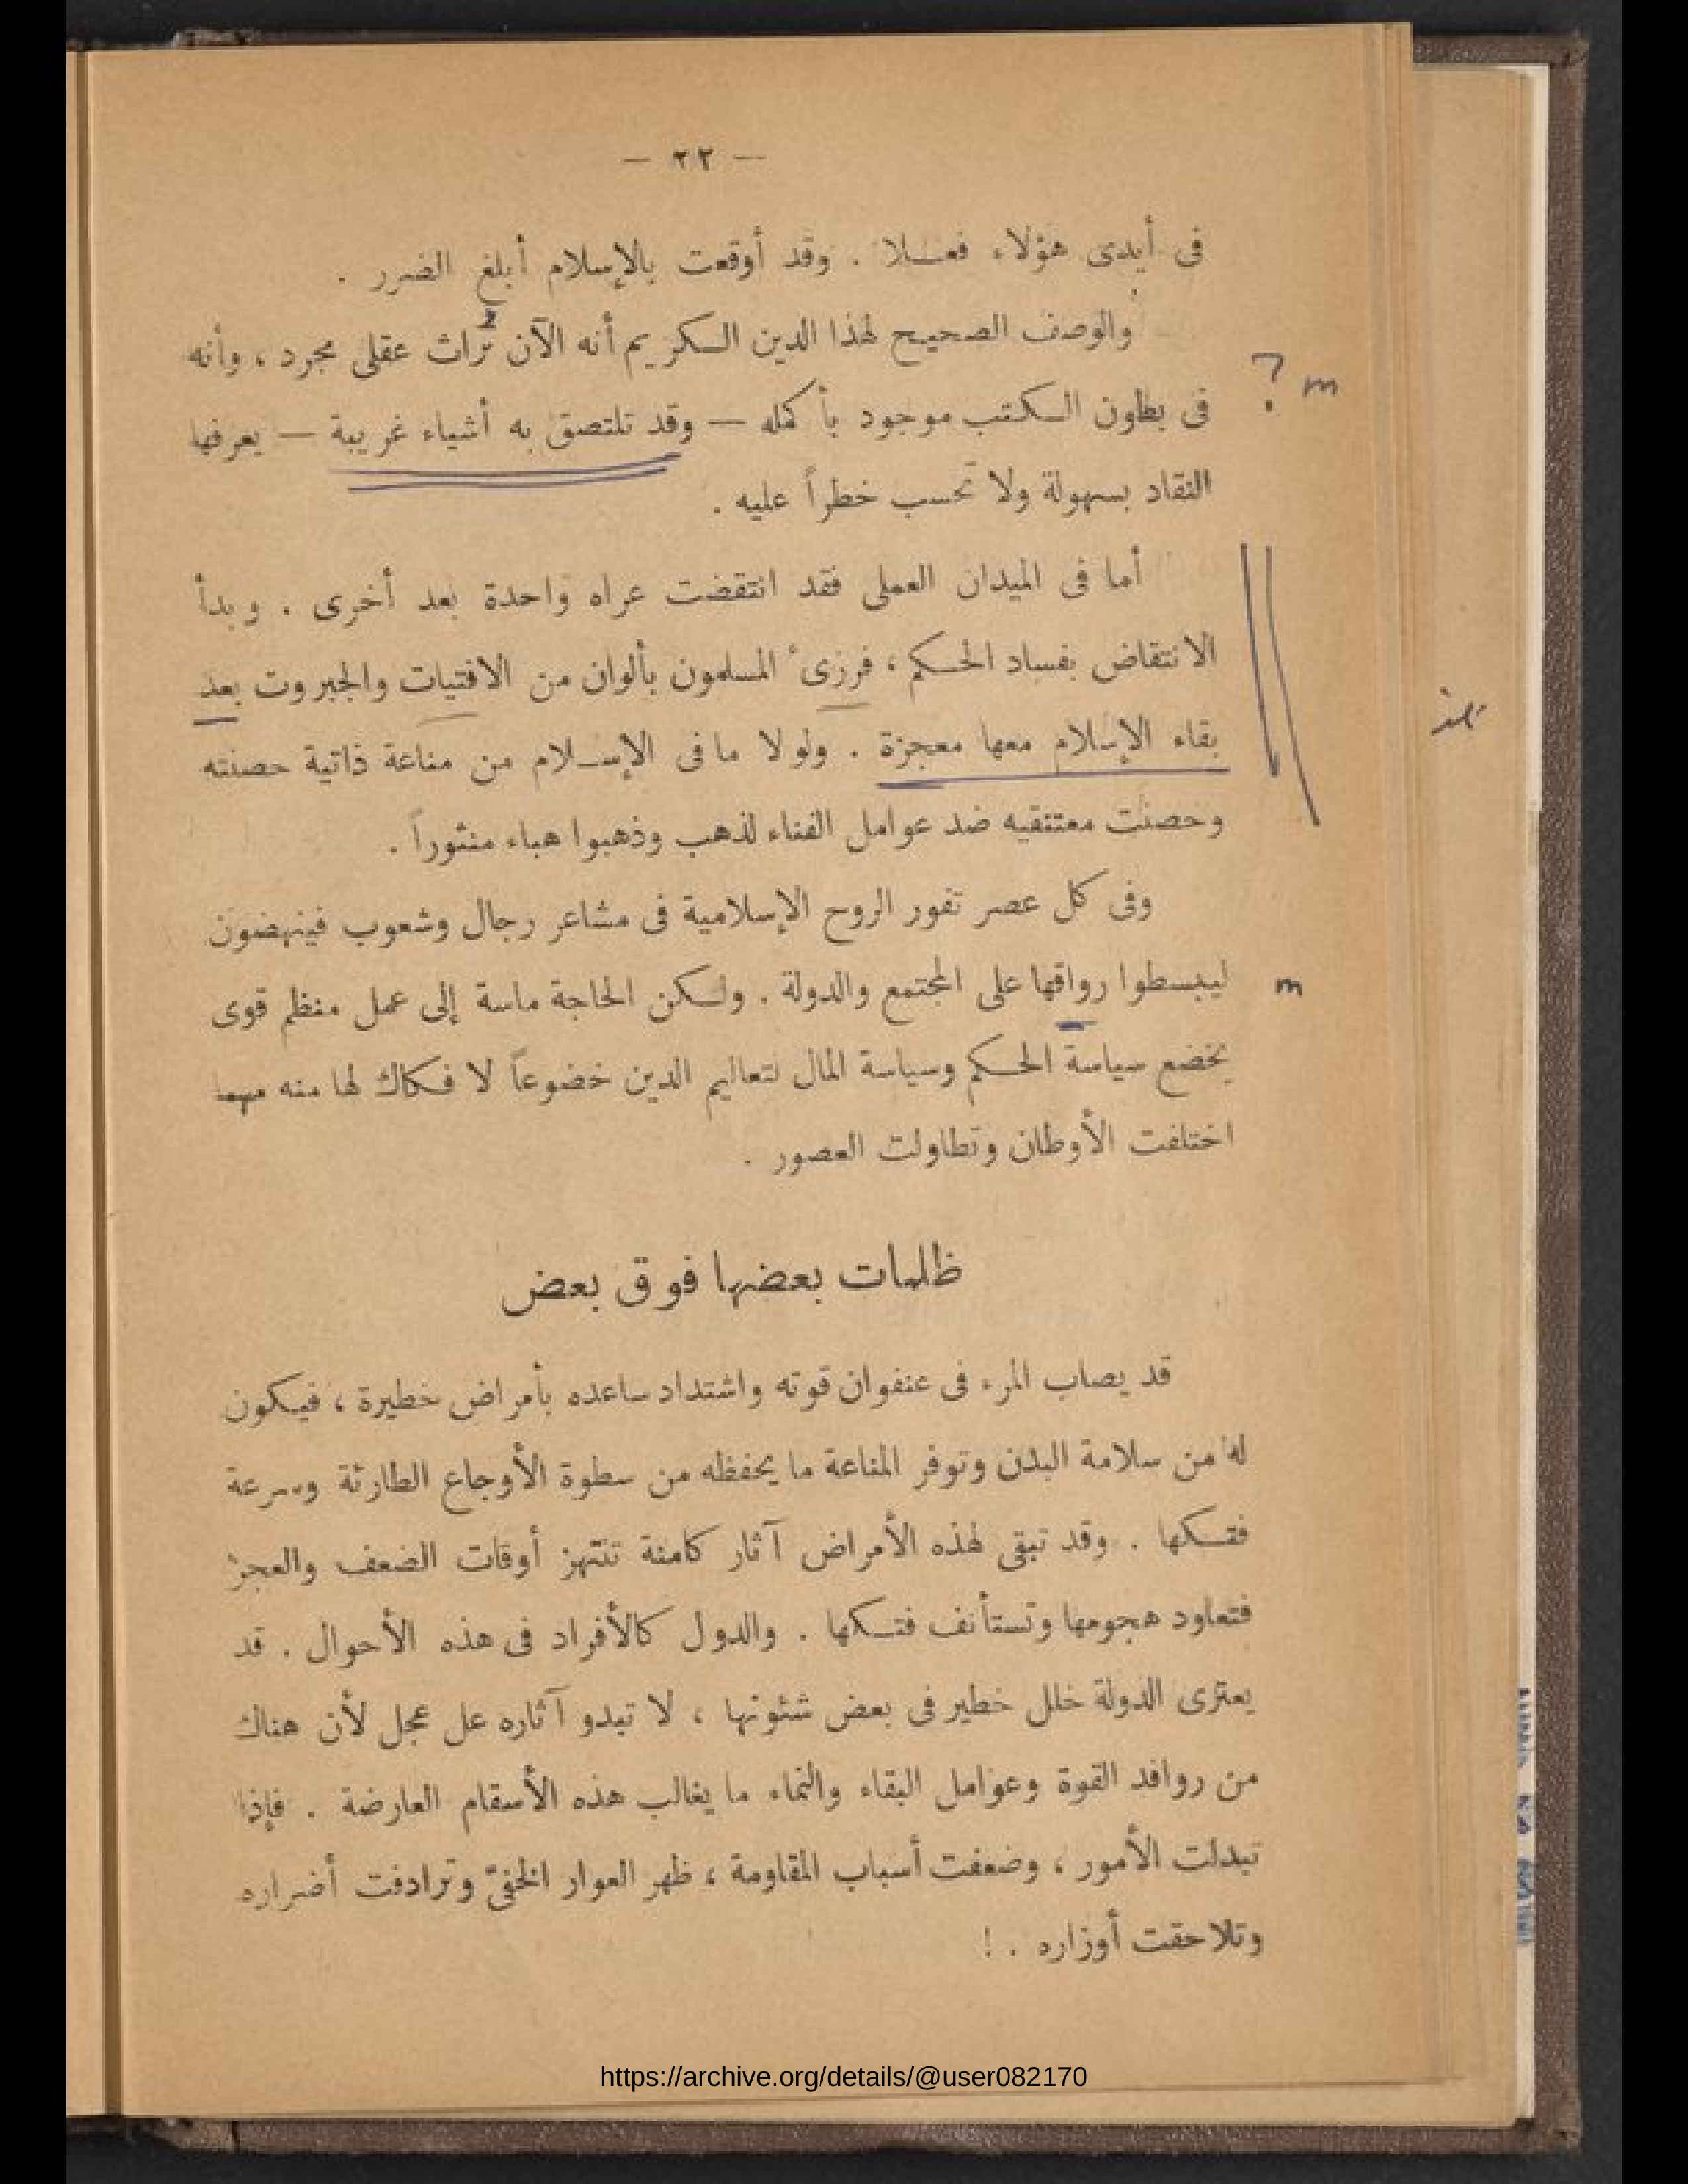 — ٢٢ —
فى أيدى هؤلاء فعلا . وقد أوقعت بالإسلام أبلغ الضرر .
والوصف الصحيح لهذا الدين الكريم أنه الآن تراث عقلى مجرد ، وأنه
? m
فى بطون الكتب موجود بأكمله — وقد تلتصق به أشياء غريبة — يعرفها
النقاد بسهولة ولا تحسب خطراً عليه .
أما فى الميدان العملى فقد انتقضت عراه واحدة بعد أخرى . وبدأ
الانتقاض بفساد الحكم ، فرزىء المسلمون بألوان من الافتيات والجبروت بعد
بقاء الإسلام معها معجزة . ولولا ما فى الإسلام من مناعة ذاتية حصنته
وحصنت معتنقيه ضد عوامل الفناء لذهب وذهبوا هباء منثوراً .
وفى كل عصر تفور الروح الإسلامية فى مشاعر رجال وشعوب فينهضون
ليبسطوا رواقها على المجتمع والدولة . ولكن الحاجة ماسة إلى عمل منظم قوى
m
يخضع سياسة الحكم وسياسة المال لتعاليم الدين خضوعاً لا فكاك لها منه مهما
اختلفت الأوطان وتطاولت العصور .
ظلمات بعضها فوق بعض
قد يصاب المرء فى عنفوان قوته واشتداد ساعده بأمراض خطيرة ، فيكون
له من سلامة البدن وتوفر المناعة ما يحفظه من سطوة الأوجاع الطارئة وسرعة
فتكها . وقد تبقى لهذه الأمراض آثار كامنة تنتهز أوقات الضعف والعجز
فتعاود هجومها وتستأنف فتكها . والدول كالأفراد فى هذه الأحوال . قد
يعترى الدولة خلل خطير فى بعض شئونها ، لا تبدو آثاره عل عجل لأن هناك
من روافد القوة وعوامل البقاء والنماء ما يغالب هذه الأسقام العارضة . فإذا
تبدلت الأمور ، وضعفت أسباب المقاومة ، ظهر العوار الخفىّ وترادفت أضراره
وتلاحقت أوزاره . !
https://archive.org/details/@user082170